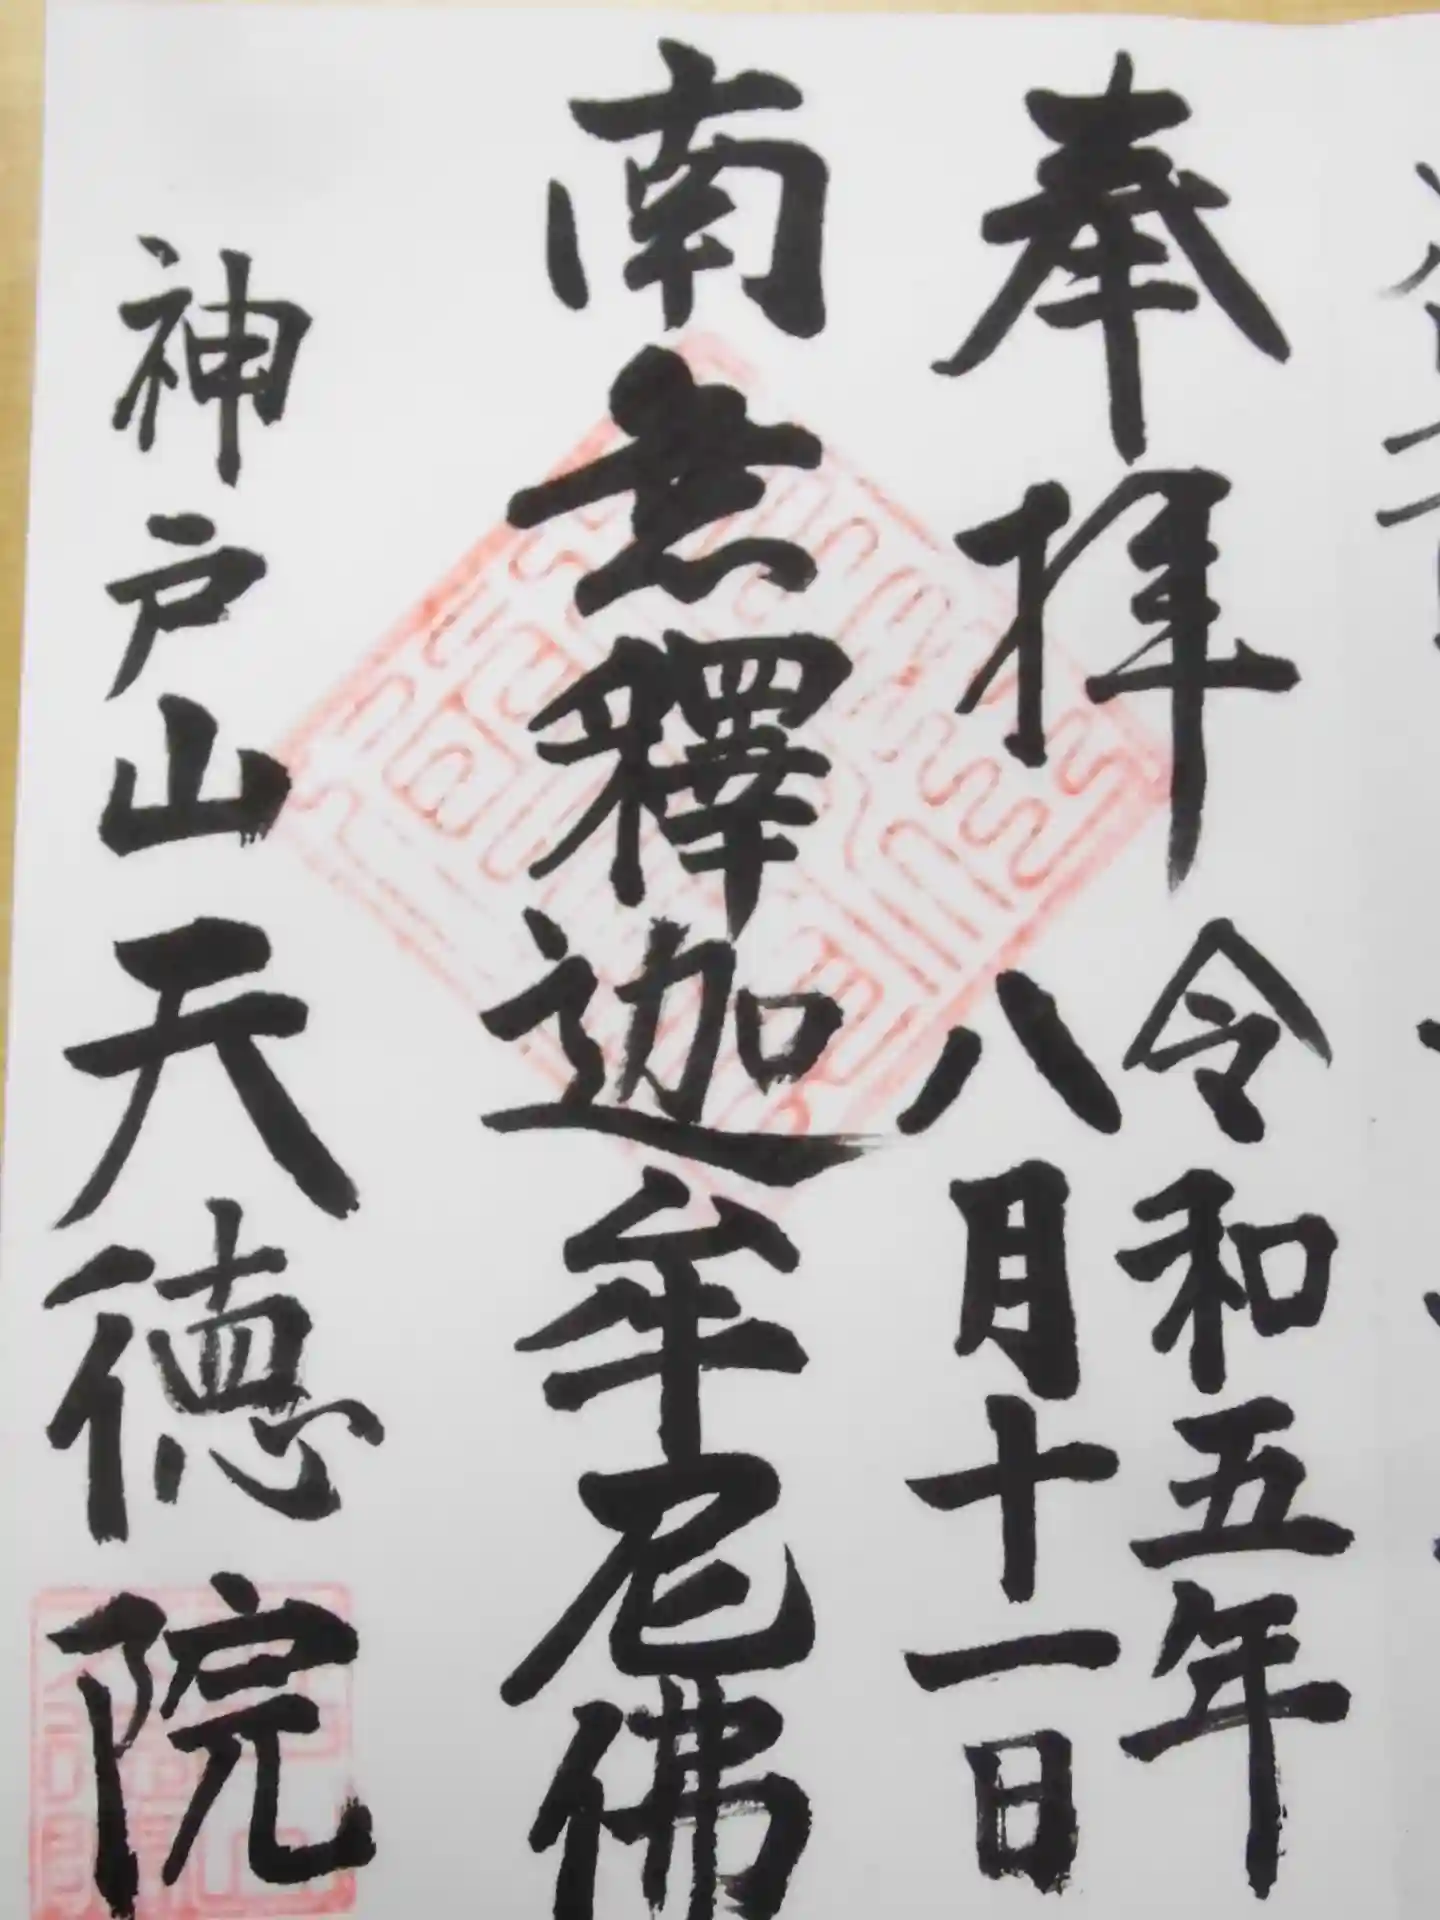 奉拝
令和五年
八月十一日
南無釋迦牟尼佛
神戸山天徳院